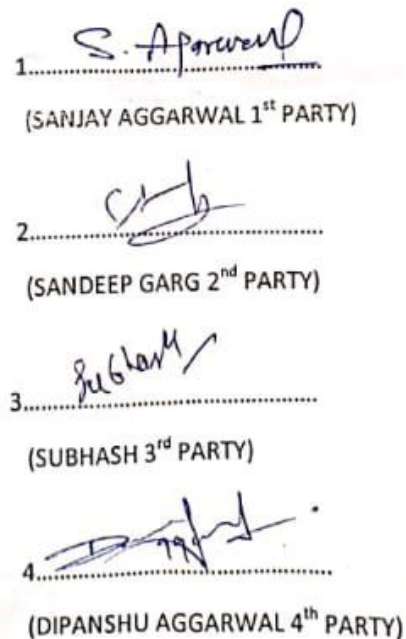 S. Aggarwal
1..............................
(SANJAY AGGARWAL 1st PARTY)
2..............................
(SANDEEP GARG 2nd PARTY)
Subhash
3..............................
(SUBHASH 3rd PARTY)
4..............................
(DIPANSHU AGGARWAL 4th PARTY)